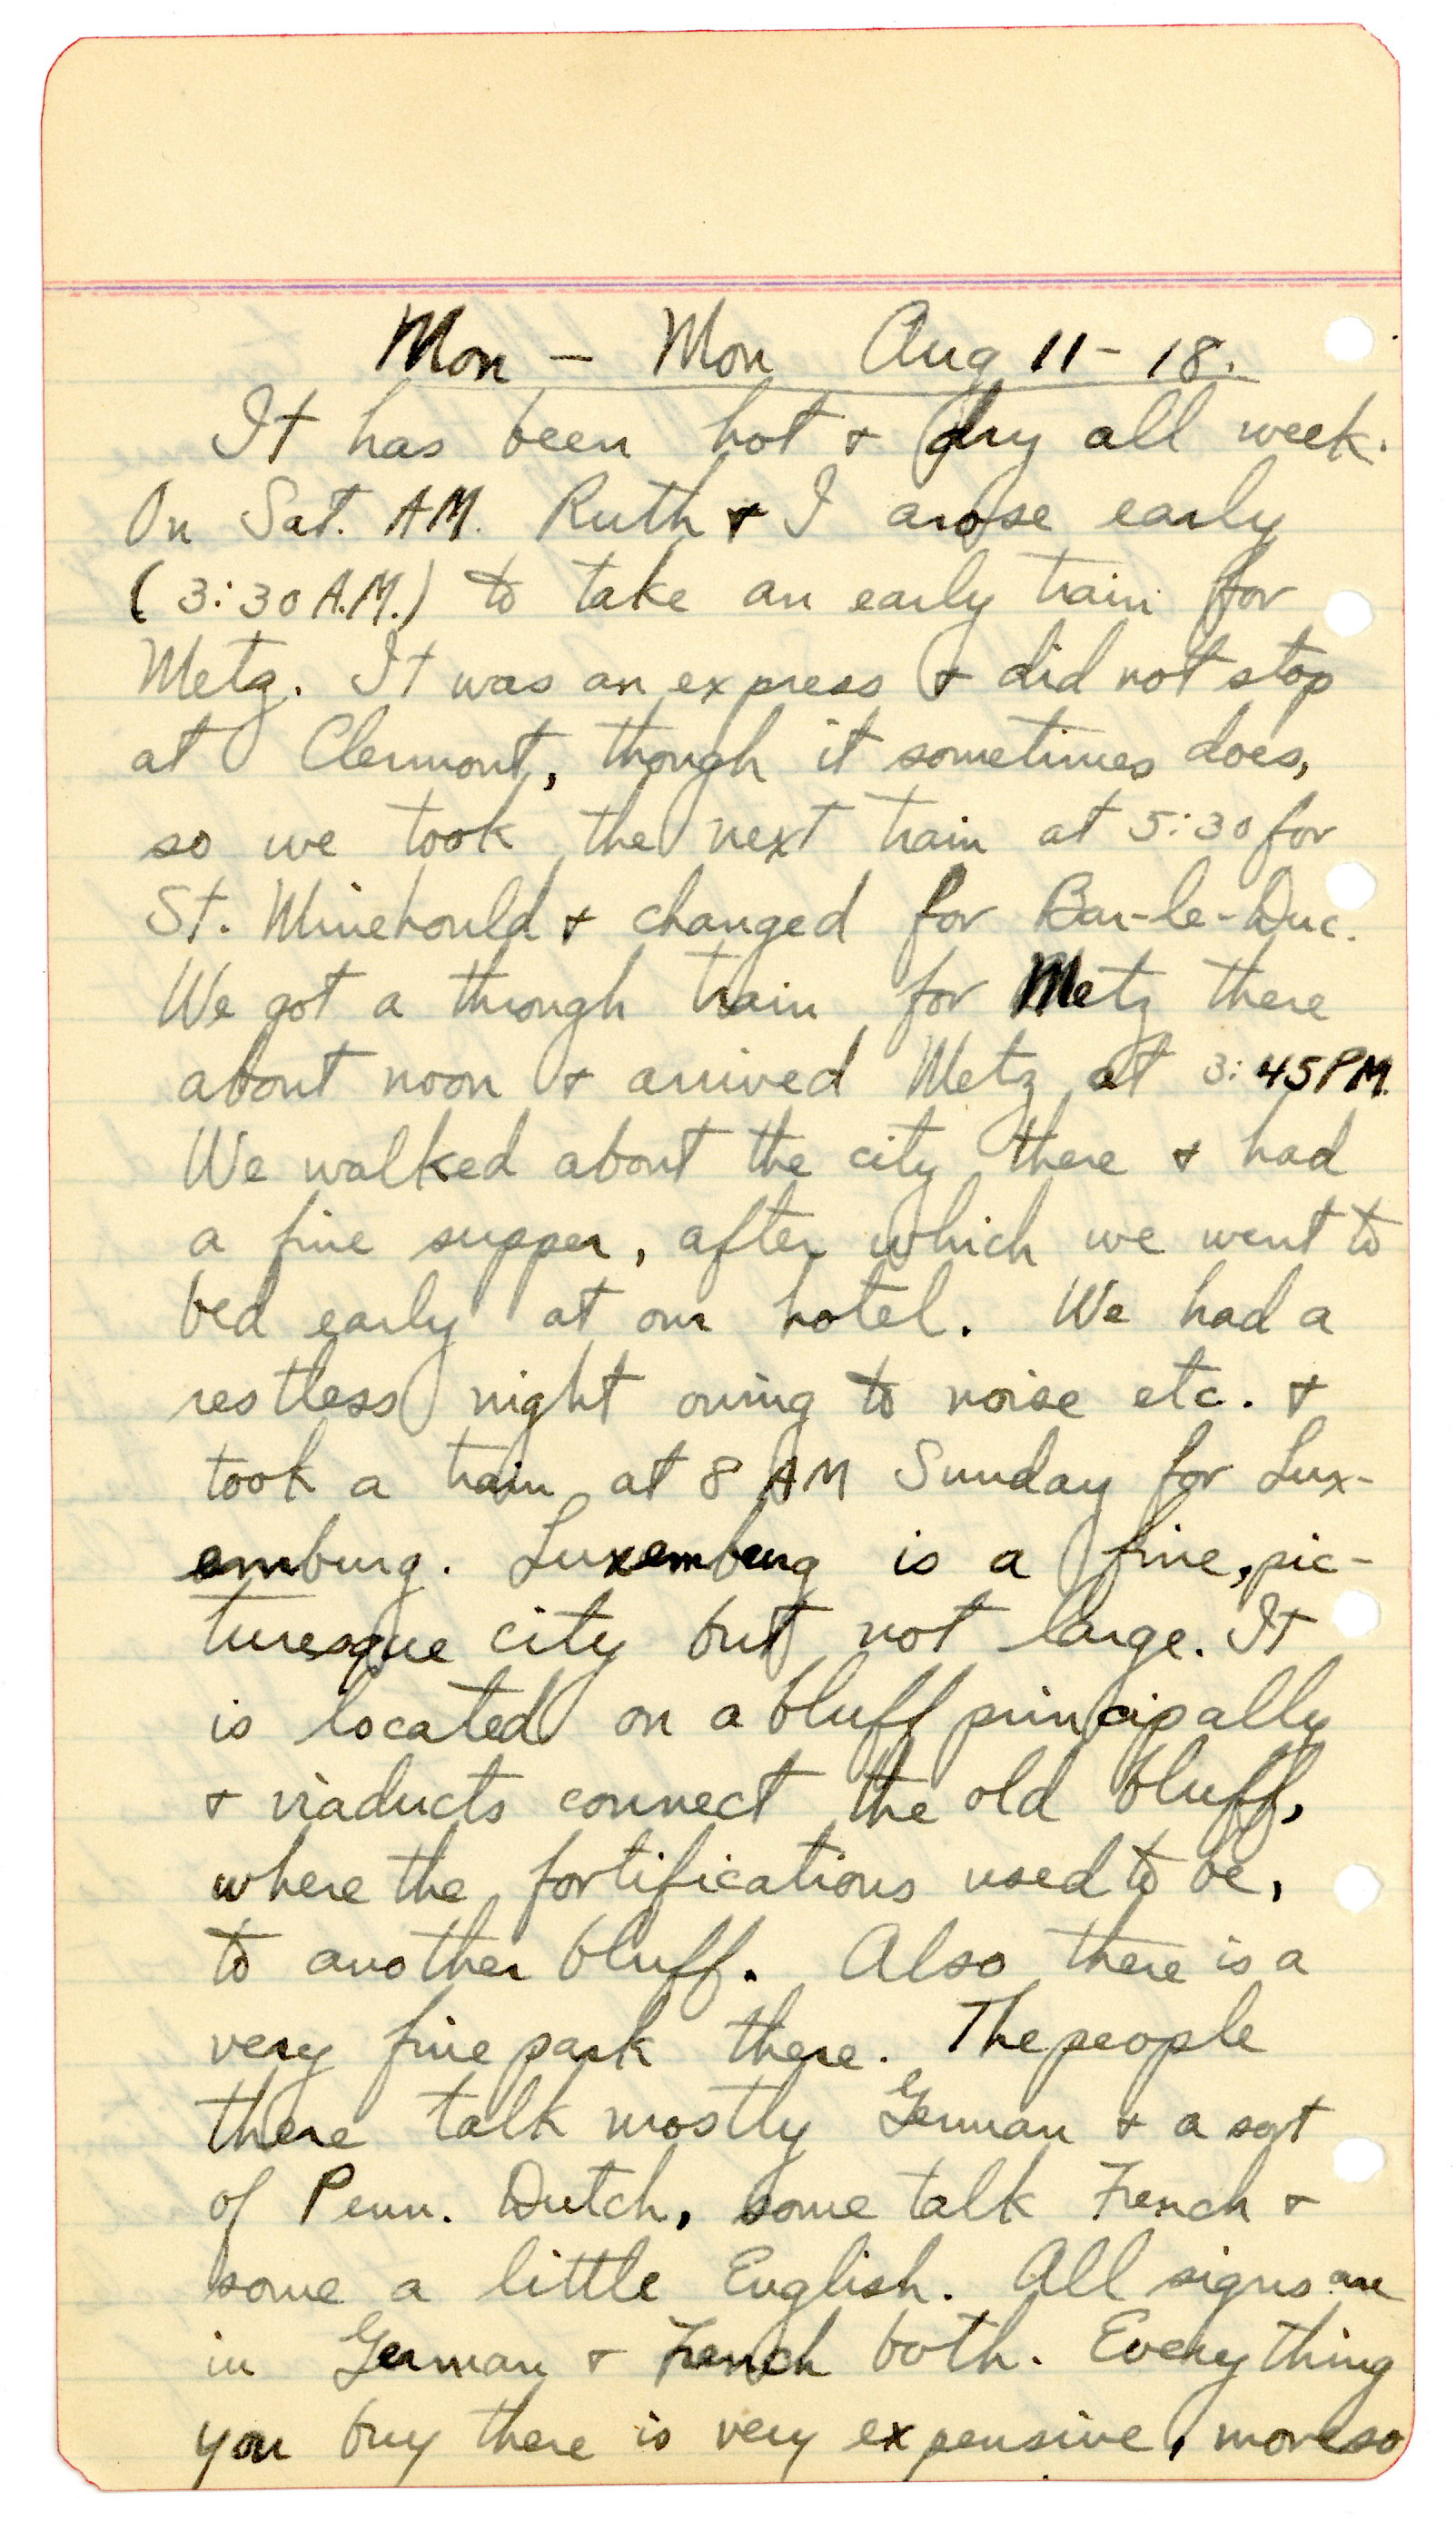 Mon - Mon Aug 11 - 18.
It has been hot + dry all week.
On Sat. AM. Ruth + I arose early
(3:30 A.M.) to take an early train for
Metz. It was an express + did not stop
at Clermont, though it sometimes does,
so we took the next train at 5:30 for
St. Minehould + changed for Bar-le-Duc.
We got a through train for Metz there
about noon + arrived Metz at 3:45 PM.
We walked about the city there + had
a fine supper, after which we went to
bed early at our hotel. We had a
restless night owing to noise etc. +
took a train at 8 AM Sunday for Lux-
emburg. Luxemburg is a fine, pic-
turesque city but not large. It
is located on a bluff principally
+ viaducts connect the old bluff,
where the fortifications used to be,
to another bluff. Also there is a
very fine park there. The people
there talk mostly German + a sort
of Penn. Dutch, some talk French +
some a little English. All signs are
in German + French both. Everything
you buy there is very expensive, moreso